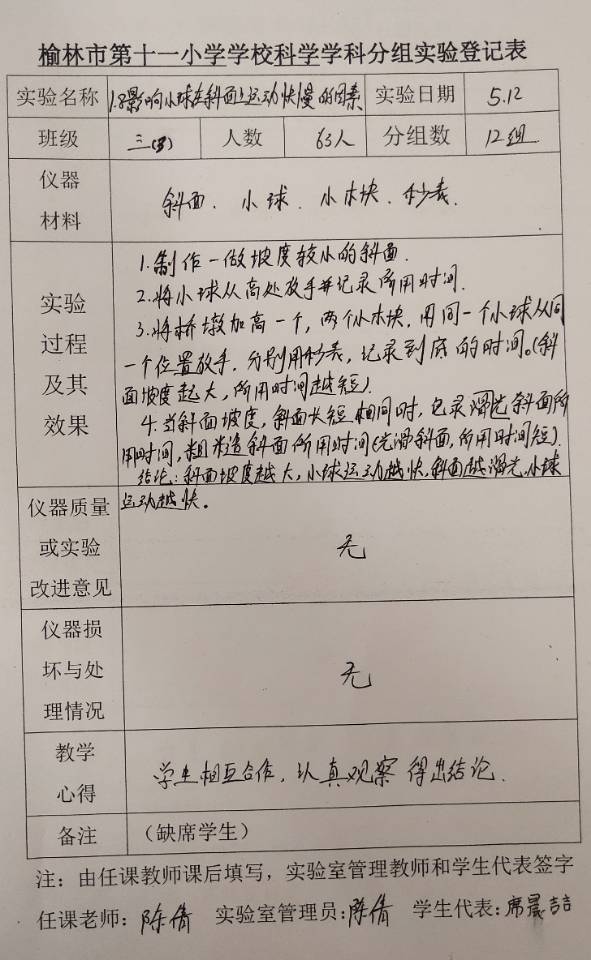 榆林市第十一小学学校科学学科分组实验登记表
实验名称 1.8影响小球在斜面上运动快慢的因素 实验日期 5.12
班级 三(8) 人数 63人 分组数 12组
仪器
材料
斜面、小球、小木块、秒表.
实验
过程
及其
效果
1.制作一做坡度较小的斜面.
2.将小球从高处放手并记录所用时间.
3.将桥墩加高一个,两个小木块,用同一个小球从同
一个位置放手.分别用秒表,记录到底的时间。(斜
面坡度起大,所用时间越短).
4.当斜面坡度,斜面长短相同时,记录滑光斜面所
用时间,粗糙斜面所用时间(光滑斜面,所用时间短).
结论:斜面坡度越大,小球运动越快,斜面越滑光,小球
运动越快。
仪器质量
或实验
改进意见
无
仪器损
坏与处
理情况
无
教学
心得
学生相互合作,认真观察得出结论.
备注 (缺席学生)
注:由任课教师课后填写,实验室管理教师和学生代表签字
任课老师:陈倩 实验室管理员:陈倩 学生代表:席晨喆